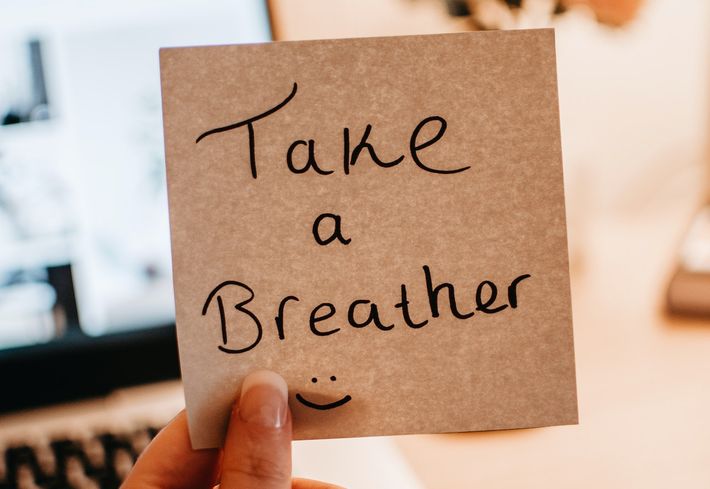 Take
a
Breather